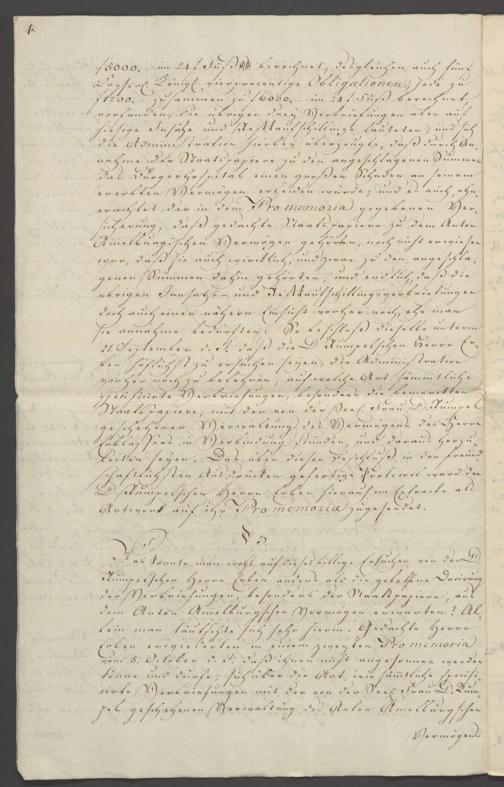 4.
f 5000. im 24 f. Fuß berechnet, desgleichen auch fünf
Kayserl. Königl. vierprocentige Obligationen, jede zu
f 1200. zusammen zu f 6000. im 24 f. Fuß berechnet
vorfanden, die übrigen drey Verbriefungen aber auf
hiesige Insätze und Restkaufschillinge lauteten; und sich
die Administration hierbey überzeugte, daß durch An-
nahme der Staatspapiere zu den angeschlagenen Summen
das Bürgerhospital einen großen Schaden an seinem
ererbten Vermögen erleiden würde; und es auch, ohn-
erachtet der in dem Promemoria gegebenen Ver-
sicherung, daß gedachte Staatspapiere zu dem Anton
Amelburgischen Vermögen gehörten, noch nicht erwiesen
war, daß sie auch wirklich, und zwar zu den angeschla-
genen Summen dahin gehörten; und endlich, daß die
übrigen Insatz- und Restkaufschillingsverbriefungen
doch auch einer nähern Einsicht vorher noch, ehe man
sie annahme, bedürften: So beschloß dieselbe unterm
21 September d. J. daß die D. Rumpelschen Herrn Er-
ben höflichst zu ersuchen seyen, die Administration
vorher noch zu belehren, auf welche Art sämmtliche
specificirte Verbriefungen, besonders die bemerkten
Staatspapiere, mit der von der Seel. Frau D. Rumpel
geschehenen Verwaltung des Vermögens des Herrn
Erblassers in Verbindung stünden, und daraus herzu-
leiten seyen. Das über diesen Beschluß in den freund-
schaftlichsten Ausdrücken gefertigte Protocoll ward den
D. Rumpelschen Herrn Erben hierauf im Extracte als
Antwort auf ihr Promemoria zugesendet.
§ 5.
Was konnte man wohl auf dieses billige Ersuchen von den D.
Rumpelschen Herrn Erben anders als die gebethene Docirung
der Verbriefungen, besonders der Staatspapiere, aus
dem Anton Amelburgschen Vermögen erwarten? Al-
lein man täuschte sich sehr hierin. Gedachte Herrn
Erben erwiederten in einem zweyten Promemoria
vom 8. October d. J. daß ihnen nicht angesonnen werden
könne und dürfe, sich über die Art, wie sämtliche specifi-
cirte Verbriefungen mit der von der Seel. Frau D. Rum-
pel geschehenen Verwaltung des Anton Amelburgschen
Vermögens